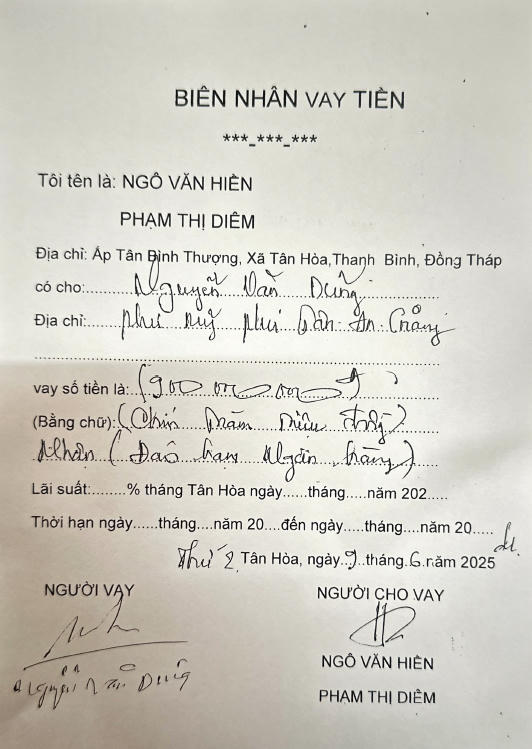 BIÊN NHẬN VAY TIỀN
***_***_***
Tôi tên là: NGÔ VĂN HIỀN
PHẠM THỊ DIỄM
Địa chỉ: Ấp Tân Bình Thượng, Xã Tân Hòa,Thanh Bình, Đồng Tháp
có cho: Nguyễn Văn Dũng
Địa chỉ: Phú Mỹ Phú Tân An Giang
vay số tiền là: (900 000 000 đ)
(Bằng chữ): (Chín Trăm Triệu đồng)
Nhận (Đáo hạn Ngân hàng)
Lãi suất:.........% tháng Tân Hòa ngày......tháng.....năm 202.....
Thời hạn ngày......tháng....năm 20....đến ngày......tháng....năm 20.....
Thứ 2 Tân Hòa, ngày 9 tháng 6 năm 2025
NGƯỜI VAY NGƯỜI CHO VAY
Nguyễn Văn Dũng
NGÔ VĂN HIỀN
PHẠM THỊ DIỄM